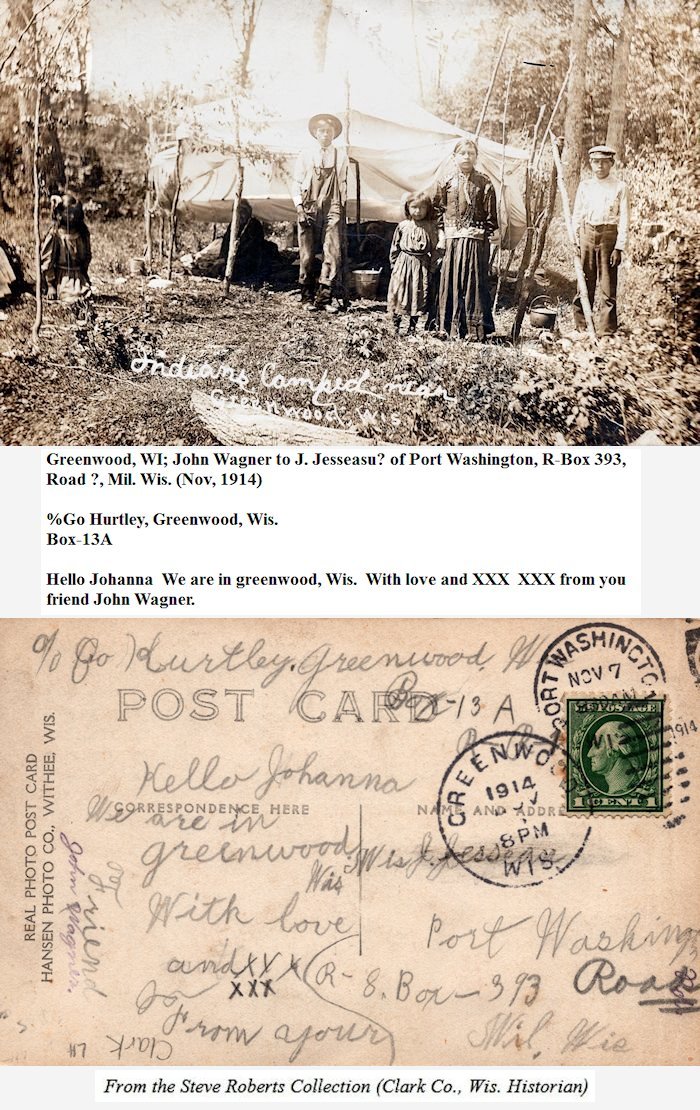 Indians Camped near
Greenwood, Wis
Greenwood, WI; John Wagner to J. Jesseasu? of Port Washington, R-Box 393,
Road ?, Mil. Wis. (Nov, 1914)
%Go Hurtley, Greenwood, Wis.
Box-13A
Hello Johanna  We are in greenwood, Wis.  With love and XXX  XXX from you
friend John Wagner.
% Go Hurtley, Greenwood, W
Box-13 A
POST CARD
PORT WASHINGTO
NOV 7
1914
WIS
U.S. POSTAGE
1 CENT 1
GREENWO
1914
8 PM
WIS.
Hello Johanna
CORRESPONDENCE HERE
NAME AND ADDRE
We are in
greenwood
Wis
With love
and XXX
XXX
From your
friend
John Wagner.
Wis J.
Port Washing
R- 8. Box - 393 Road
Mil, Wis
REAL PHOTO POST CARD
HANSEN PHOTO CO., WITHEE, WIS.
Clark
From the Steve Roberts Collection (Clark Co., Wis. Historian)